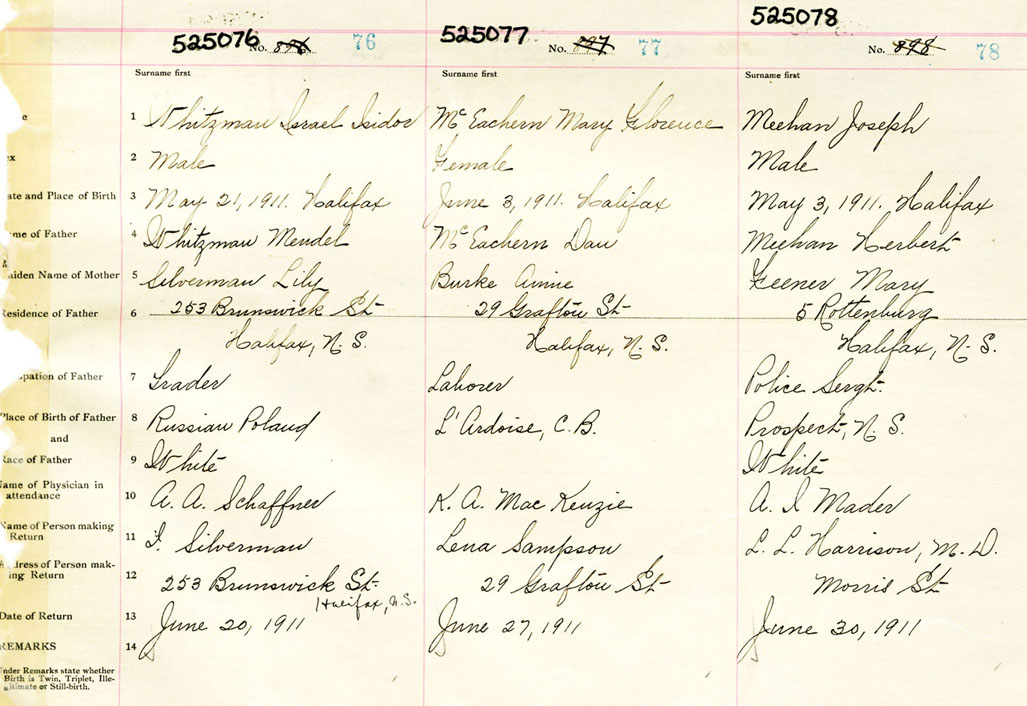 525076 No. 896 76 525077 No. 897 77 525078 No. 898 78
Surname first Surname first Surname first
e 1 Whitzman Israel Isidor McEachern Mary Florence Meehan Joseph
ex 2 Male Female Male
ate and Place of Birth 3 May 21, 1911. Halifax June 3, 1911. Halifax May 3, 1911. Halifax
me of Father 4 Whitzman Mendel McEachern Dan Meehan Herbert
aiden Name of Mother 5 Silverman Lily Burke Annie Feener Mary
Residence of Father 6 253 Brunswick St 29 Grafton St 5 Rottenburg
Halifax, N.S. Halifax, N.S. Halifax, N.S.
pation of Father 7 Trader Laborer Police Sergt.
Place of Birth of Father 8 Russian Poland L'Ardoise, C.B. Prospect, N.S.
and
Race of Father 9 White White
Name of Physician in
attendance 10 A. A. Schaffner K. A. MacKenzie A. I Mader
Name of Person making
Return 11 I. Silverman Lena Sampson L. L. Harrison, M.D.
Address of Person mak-
ing Return 12 253 Brunswick St. 29 Grafton St Morris St
Halifax, N.S.
Date of Return 13 June 20, 1911 June 27, 1911 June 30, 1911
REMARKS 14
Under Remarks state whether
Birth is Twin, Triplet, Ille-
gitimate or Still-birth.